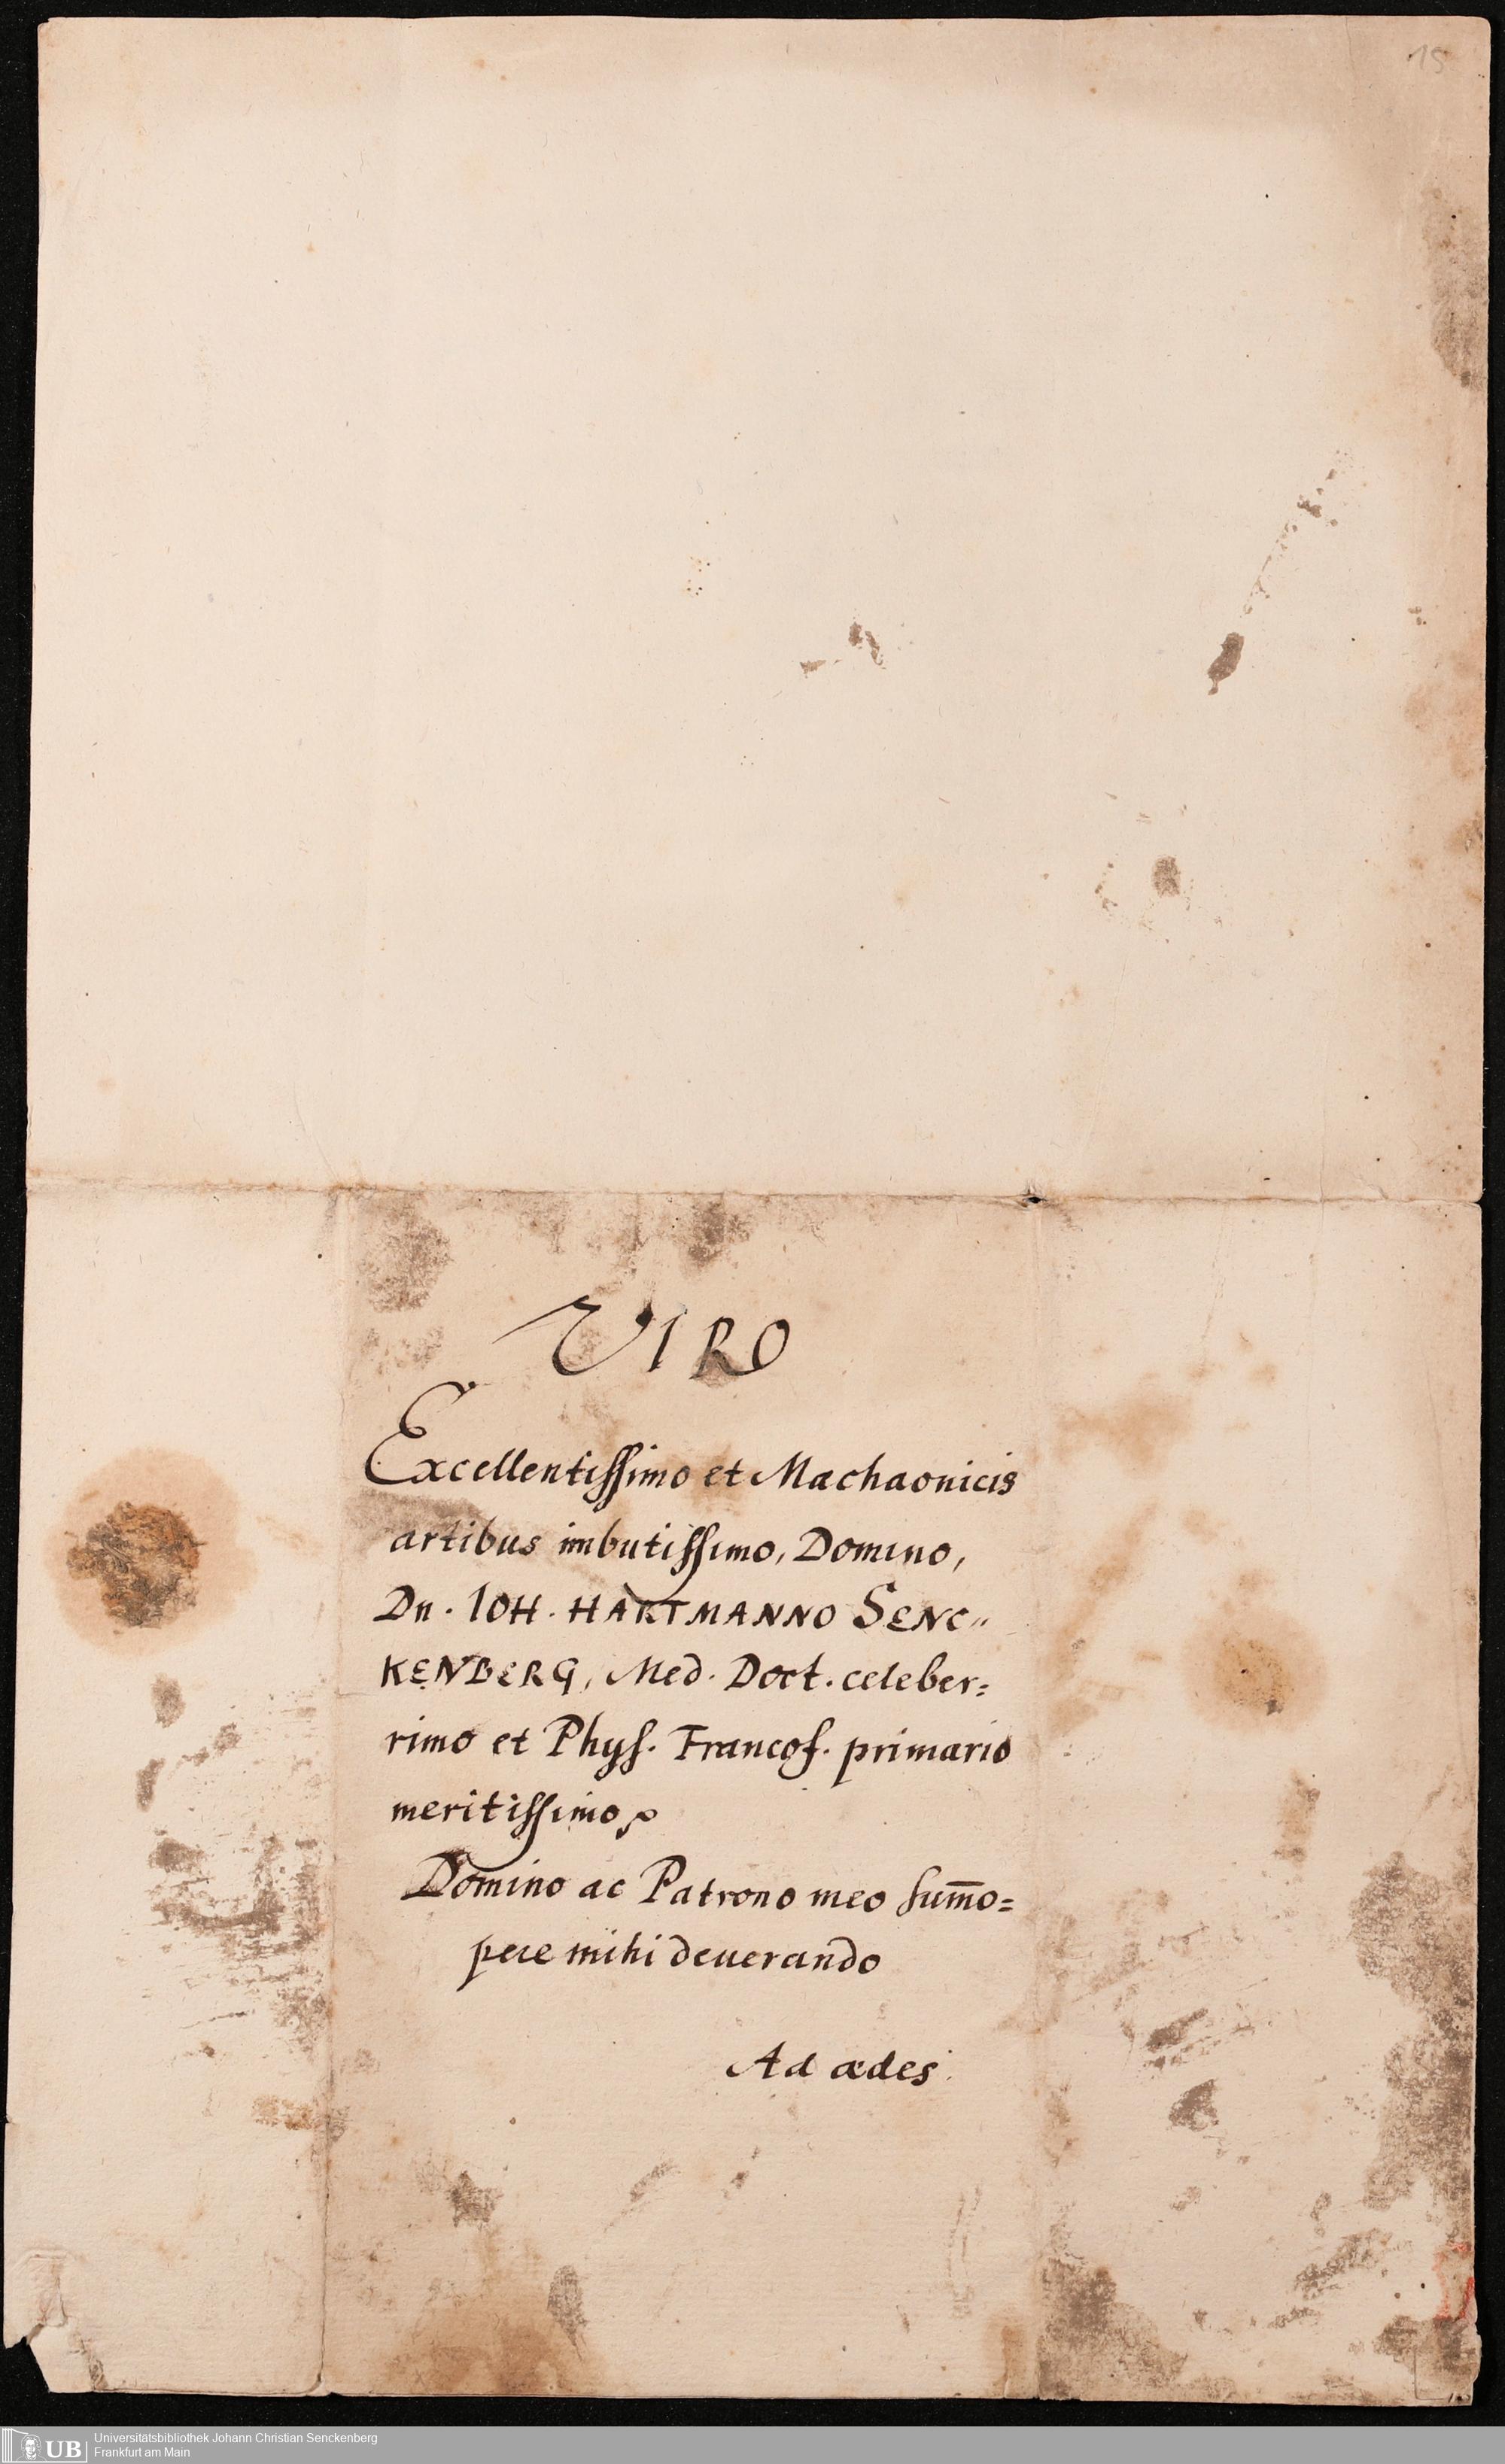 15
VIRO
Excellentissimo et Machaonicis
artibus imbutissimo, Domino,
Dn. IOH. HARTMANNO SENC„
KENBERG, Med. Doct. celeber=
rimo et Phys. Francof. primario
meritissimo
Domino ac Patrono meo sum̅o=
pere mihi deuerando
Ad ædes.
UB
Universitätsbibliothek Johann Christian Senckenberg
Frankfurt am Main